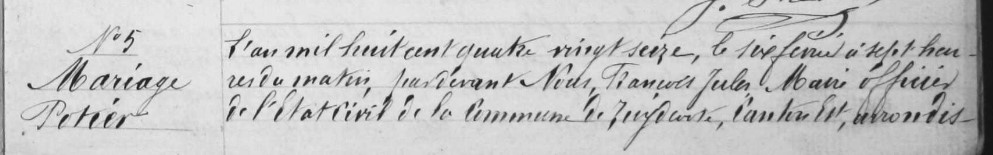 N° 5
Mariage
Potier
L'an mil huit cent quatre vingt seize, le six février à sept heu-
res du matin, pardevant Nous, François Jules, Maire officier
de l'Etat Civil de la Commune de Zuydcoote, Canton Est, arrondis-